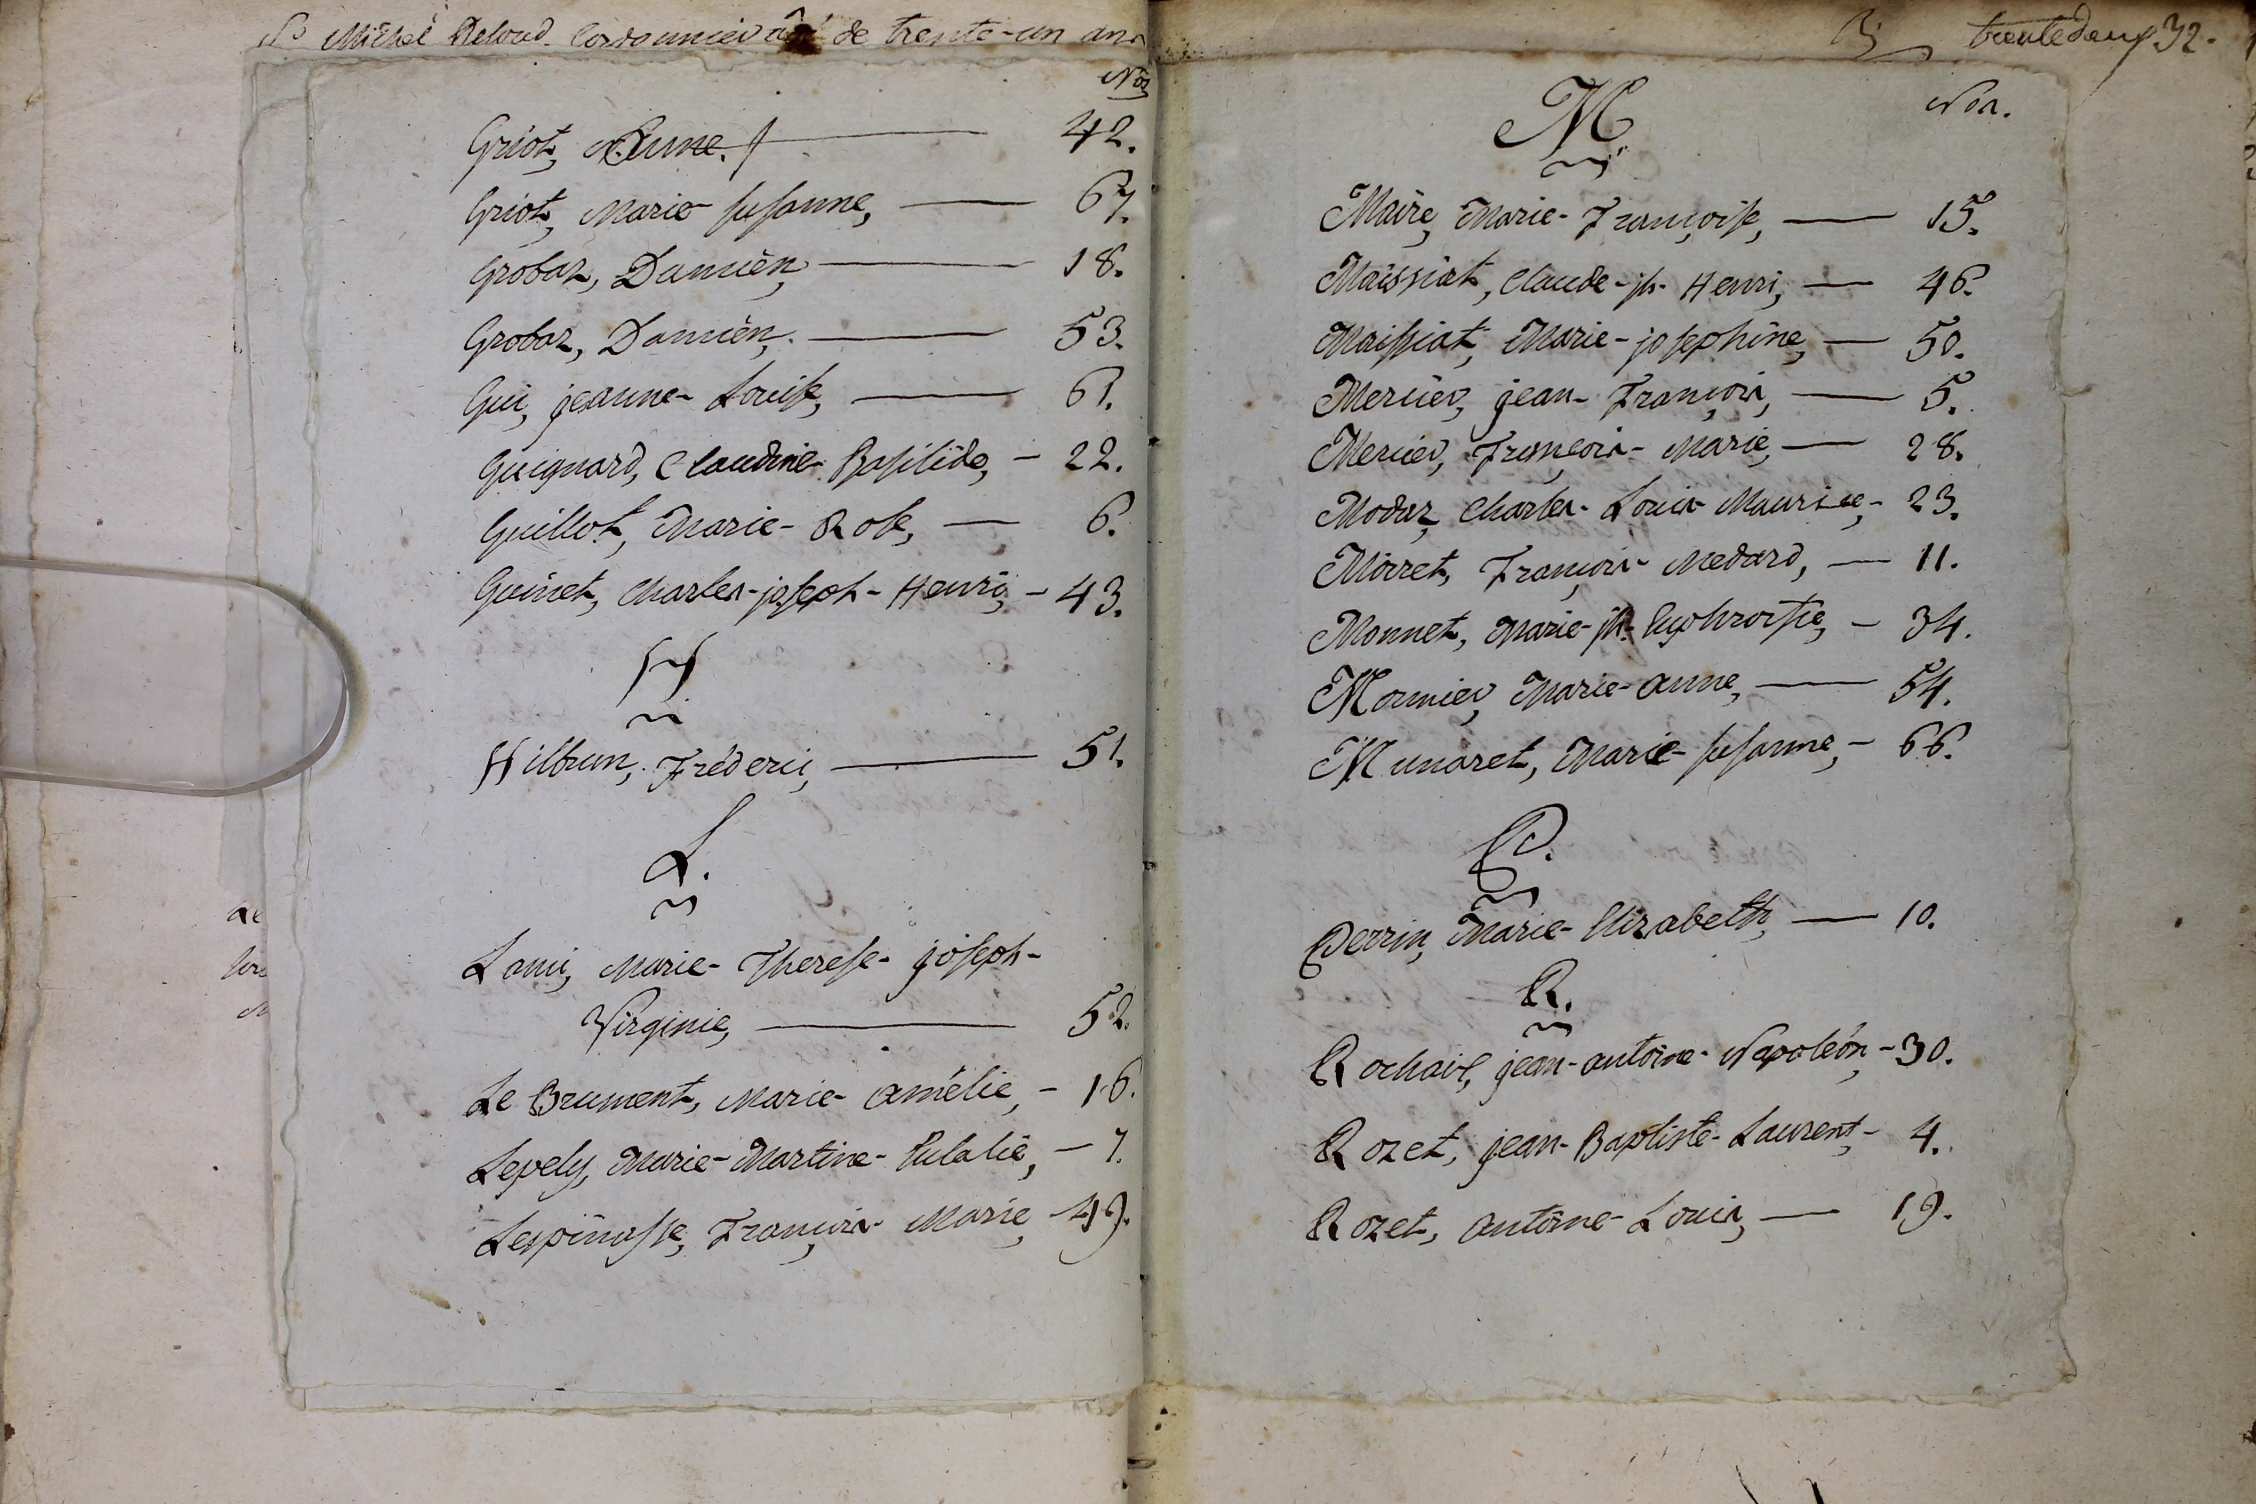 Michel Deloud Cordonnier âgé de trente-un ans
Nos
Griot, Anne. 42.
Griot, Marie susanne, — 67.
Grobaz, Damien, — 18.
Grobaz, Damien, — 53.
Gui, jeanne-Louise, — 61.
Guignard, Claudine-Basilide, — 22.
Guillot, Marie-Rose, — 6.
Guinet, Charles-joseph-Henri, — 43.
H
Hilbrun, Fréderic, — 51.
L.
Lami, Marie-Therese-joseph-
Virginie, — 52.
Le Brument, Marie-amélie, — 16.
Lepely, Marie-Martine-Eulalie, — 7.
Lespinasse, François-Marie, — 49.
trente deux 32.
Nos.
M
Maire, Marie-Françoise, — 15.
Maissiat, Claude-jh-Henri, — 46.
Maissiat, Marie-josephine, — 50.
Mercier, jean-François, — 5.
Mercier, François-Marie, — 28.
Moduz, Charles-Louis-Maurice, — 23.
Moiret, François-Medard, — 11.
Monnet, Marie-jh-Euphroisie, — 34.
Mornier, Marie-anne, — 54.
Munaret, Marie-susanne, — 66.
P.
Perrin, Marie-Elizabeth, — 10.
R.
Rochaix, jean-antoine-Napoléon, — 30.
Rozet, jean-Baptiste-Laurent, — 4.
Rozet, antoine-Louis, — 19.